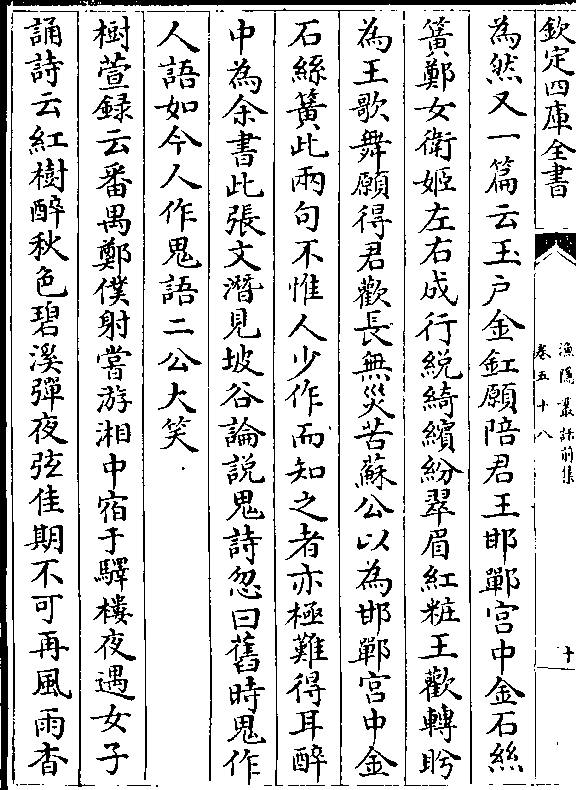 欽定四庫全書
漁隱叢話前集
卷五十八
十
為然又一篇云玉户金釭願陪君王邯鄲宮中金石絲
簧鄭女衛姬左右成行紈綺繽紛翠眉紅粧王歡轉眄
為王歌舞願得君歡長無災苦蘇公以為邯鄲宮中金
石絲簧此兩句不惟人少作而知之者亦極難得耳醉
中為余書此張文潛見坡谷論說鬼詩忽曰舊時鬼作
人語如今人作鬼語二公大笑
樹萱録云番禺鄭僕射嘗游湘中宿于驛樓夜遇女子
誦詩云紅樹醉秋色碧溪彈夜弦佳期不可再風雨杳